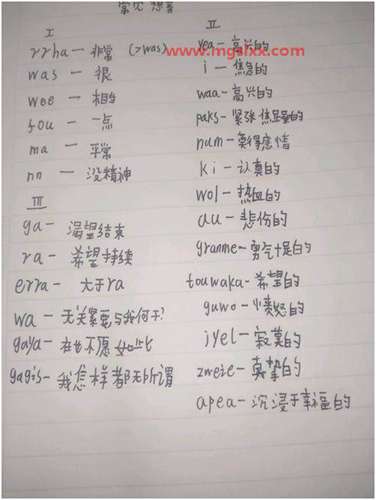 常见想音
I
rrha — 非常 (>was)
was — 很
wee — 相当
fou — 一点
ma — 平常
nn — 没精神
III
ga — 渴望结束
ra — 希望持续
erra — 大于ra
wa — 无关紧要与我何干?
gaya — 在也不愿如此
gagis — 我怎样都无所谓
II
yea — 高兴的
www.mgslxx.com
i — 焦急的
waa — 高兴的
paks — 紧张焦虑的
num — 莫得感情
ki — 认真的
wol — 热血的
au — 悲伤的
granme — 勇气十足的
touwaka — 希望的
guwo — 愤怒的
jyel — 寂寞的
zweie — 真挚的
apea — 沉浸于幸福的